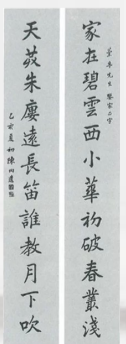 家在碧雲西小華初破春叢淺
天朱廔遠長笛誰教月下吹
乙亥夏初陳